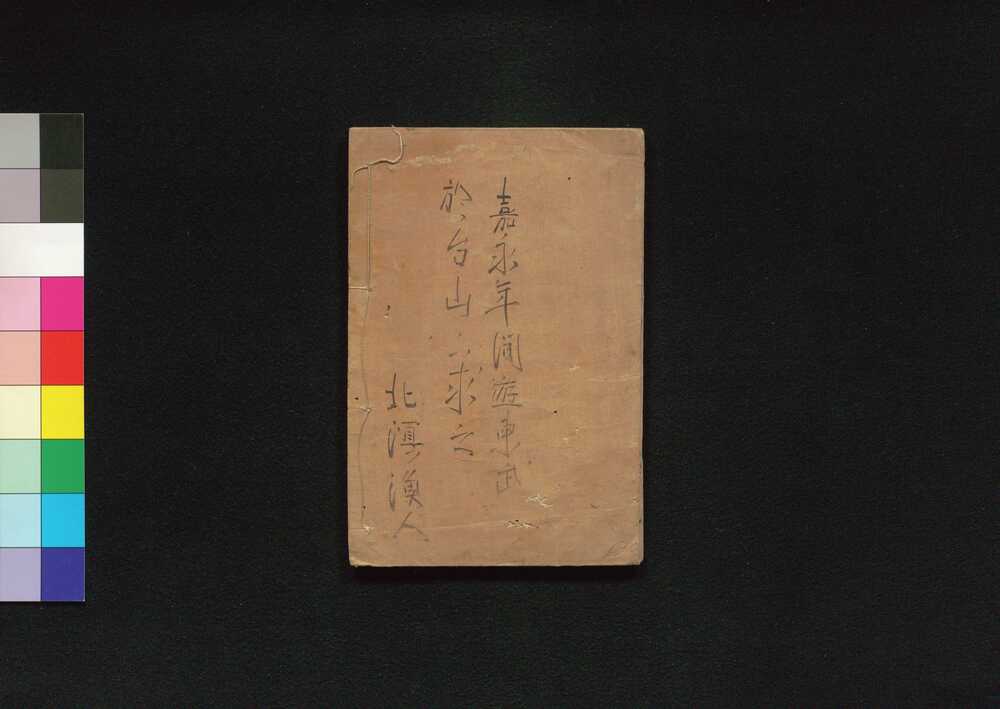 嘉永年間遊東武
於台山求之
北溟漁人